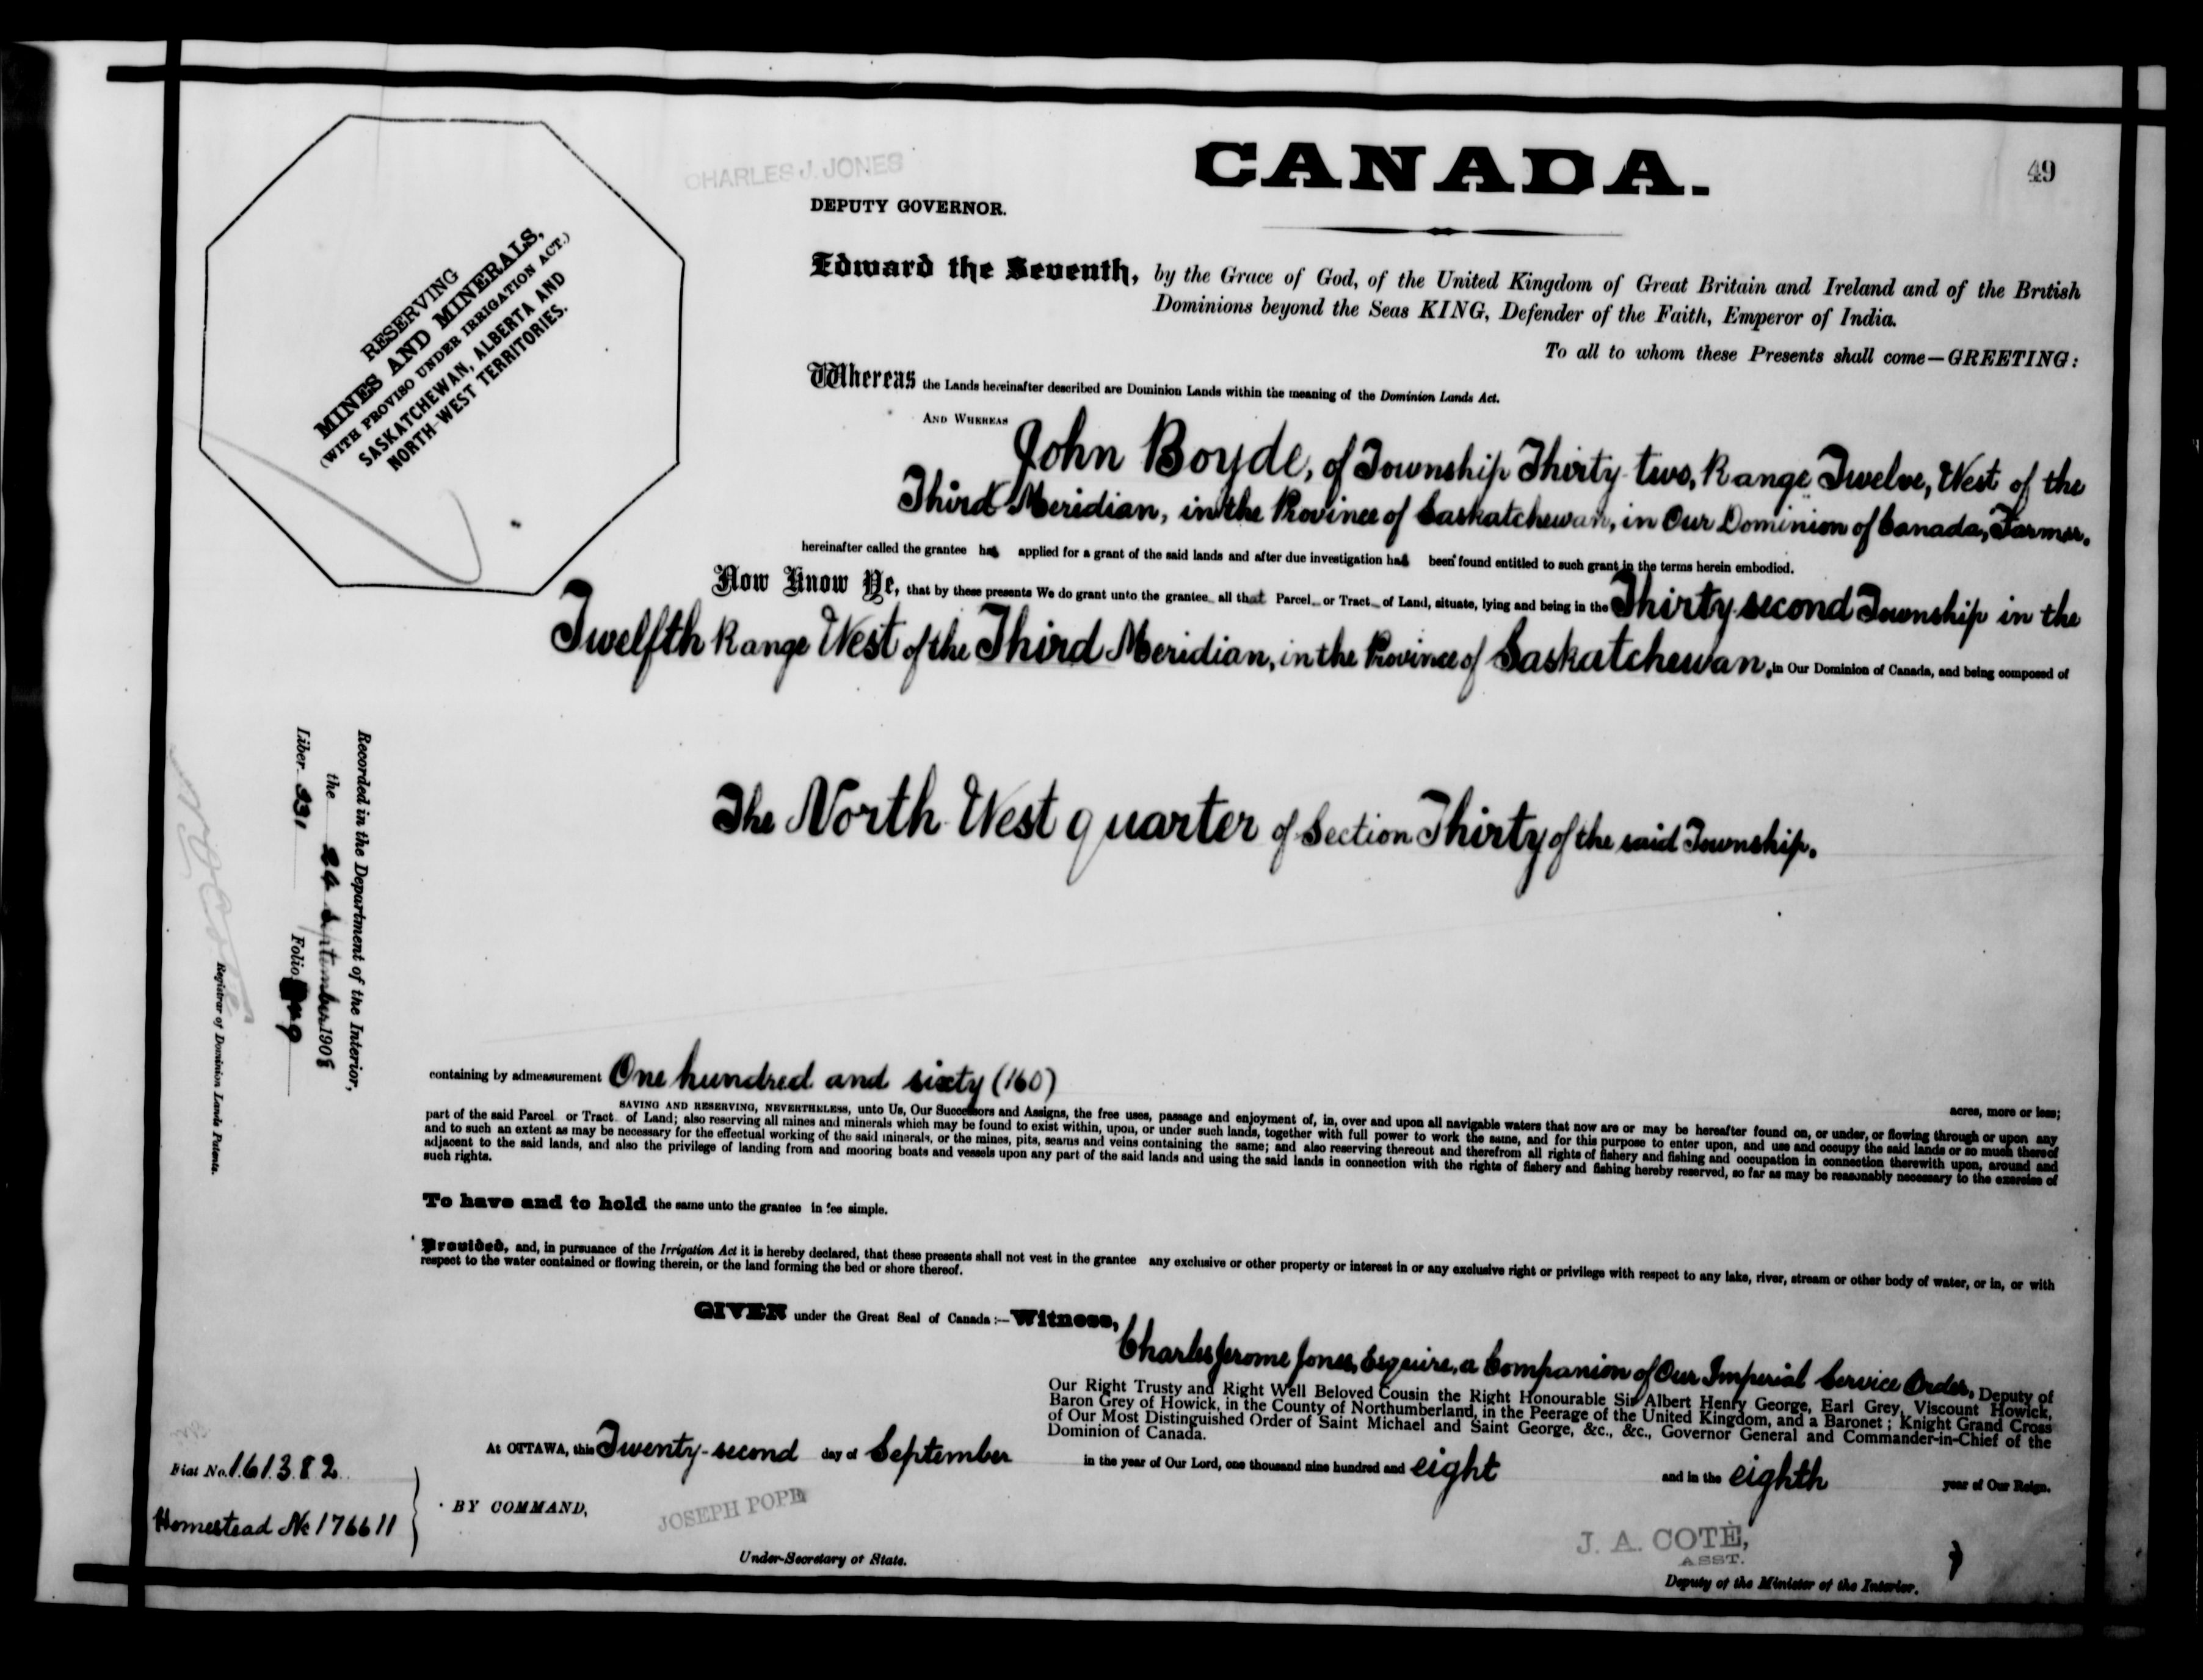 CANADA.
49
CHARLES J. JONES
DEPUTY GOVERNOR.
RESERVING
MINES AND MINERALS,
(WITH PROVISO UNDER IRRIGATION ACT.)
SASKATCHEWAN, ALBERTA AND
NORTH-WEST TERRITORIES.
Edward the Seventh, by the Grace of God, of the United Kingdom of Great Britain and Ireland and of the British
Dominions beyond the Seas KING, Defender of the Faith, Emperor of India.
To all to whom these Presents shall come—GREETING:
Whereas the Lands hereinafter described are Dominion Lands within the meaning of the Dominion Lands Act.
AND WHEREAS
John Boyde, of Township Thirty-two, Range Twelve, West of the
Third Meridian, in the Province of Saskatchewan, in Our Dominion of Canada, Farmer.
hereinafter called the grantee has applied for a grant of the said lands and after due investigation has been found entitled to such grant in the terms herein embodied.
Now Know Ye, that by these presents We do grant unto the grantee all that Parcel or Tract of Land, situate, lying and being in the Thirty-second Township in the
Twelfth Range West of the Third Meridian, in the Province of Saskatchewan, in Our Dominion of Canada, and being composed of
The North West quarter of Section Thirty of the said Township.
Recorded in the Department of the Interior,
the 24 September 1908
Liber 231 Folio 49
Registrar of Dominion Lands Patents.
containing by admeasurement One hundred and sixty (160) acres, more or less;
SAVING AND RESERVING, NEVERTHELESS, unto Us, Our Successors and Assigns, the free uses, passage and enjoyment of, in, over and upon all navigable waters that now are or may be hereafter found on, or under, or flowing through or upon any
part of the said Parcel or Tract of Land; also reserving all mines and minerals which may be found to exist within, upon, or under such lands, together with full power to work the same, and for this purpose to enter upon, and use and occupy the said lands or so much thereof
and to such an extent as may be necessary for the effectual working of the said minerals, or the mines, pits, seams and veins containing the same; and also reserving thereout and therefrom all rights of fishery and fishing and occupation in connection therewith upon, around and
adjacent to the said lands, and also the privilege of landing from and mooring boats and vessels upon any part of the said lands and using the said lands in connection with the rights of fishery and fishing hereby reserved, so far as may be reasonably necessary to the exercise of
such rights.
To have and to hold the same unto the grantee in fee simple.
Provided, and, in pursuance of the Irrigation Act it is hereby declared, that these presents shall not vest in the grantee any exclusive or other property or interest in or any exclusive right or privilege with respect to any lake, river, stream or other body of water, or in, or with
respect to the water contained or flowing therein, or the land forming the bed or shore thereof.
GIVEN under the Great Seal of Canada:—Witness,
Charles Jerome Jones, Esquire, a Companion of Our Imperial Service Order, Deputy of
Our Right Trusty and Right Well Beloved Cousin the Right Honourable Sir Albert Henry George, Earl Grey, Viscount Howick,
Baron Grey of Howick, in the County of Northumberland, in the Peerage of the United Kingdom, and a Baronet; Knight Grand Cross
of Our Most Distinguished Order of Saint Michael and Saint George, &c., &c., Governor General and Commander-in-Chief of the
Dominion of Canada.
At OTTAWA, this Twenty-second day of September in the year of Our Lord, one thousand nine hundred and eight and in the eighth year of Our Reign.
Fiat No. 161382
Homestead No 176611
BY COMMAND,
JOSEPH POPE
Under-Secretary of State.
J. A. COTÈ,
ASST.
Deputy of the Minister of the Interior.